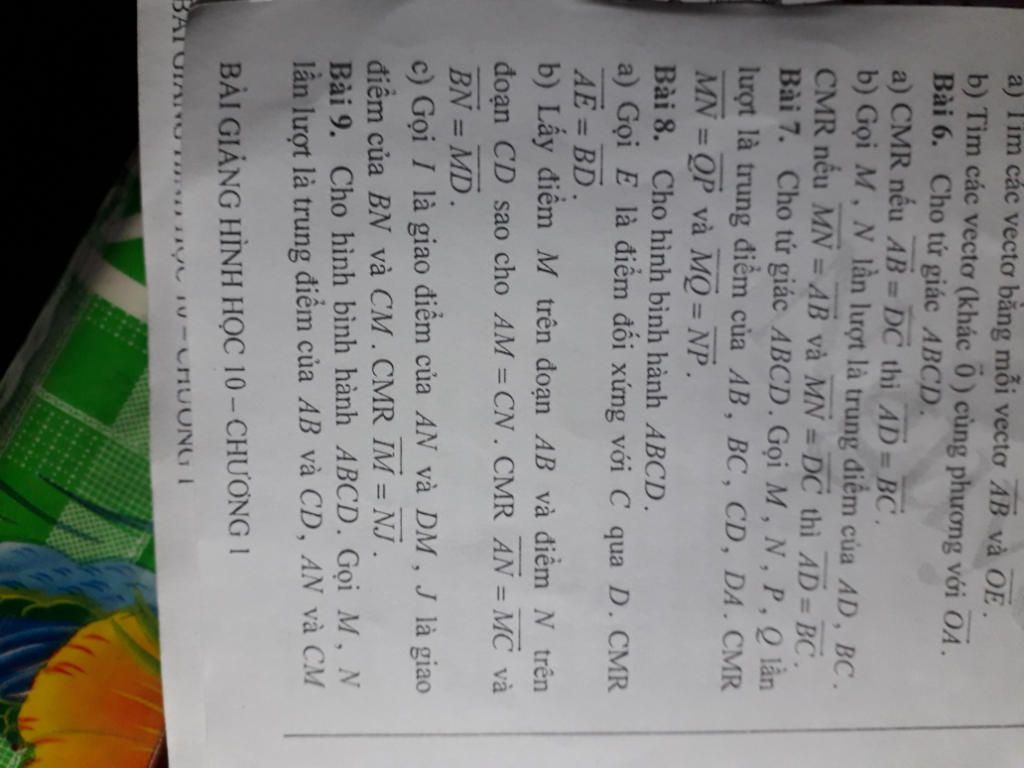 a) Tìm các vectơ bằng mỗi vectơ AB và OE.
b) Tìm các vectơ (khác 0) cùng phương với OA.
Bài 6. Cho tứ giác ABCD.
a) CMR nếu AB = DC thì AD = BC.
b) Gọi M, N lần lượt là trung điểm của AD, BC.
CMR nếu MN = AB và MN = DC thì AD = BC.
Bài 7. Cho tứ giác ABCD. Gọi M, N, P, Q lần
lượt là trung điểm của AB, BC, CD, DA. CMR
MN = QP và MQ = NP.
Bài 8. Cho hình bình hành ABCD.
a) Gọi E là điểm đối xứng với C qua D. CMR
AE = BD.
b) Lấy điểm M trên đoạn AB và điểm N trên
đoạn CD sao cho AM = CN. CMR AN = MC và
BN = MD.
c) Gọi I là giao điểm của AN và DM, J là giao
điểm của BN và CM. CMR IM = NJ.
Bài 9. Cho hình bình hành ABCD. Gọi M, N
lần lượt là trung điểm của AB và CD, AN và CM
BÀI GIẢNG HÌNH HỌC 10 – CHƯƠNG 1
BÀI GIẢNG HÌNH HỌC 10 – CHƯƠNG 1